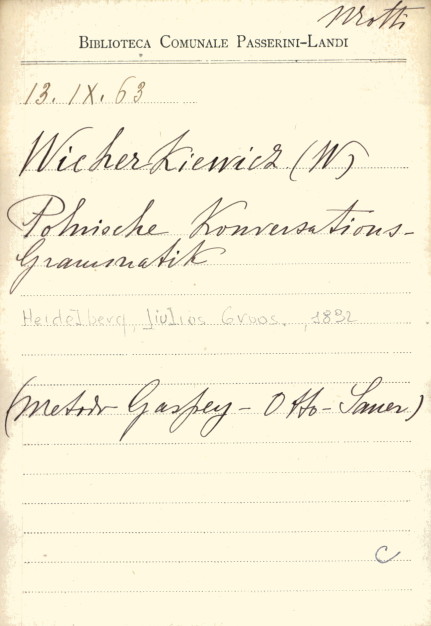 BIBLIOTECA COMUNALE PASSERINI-LANDI
13. IX. 63
Wicherkiewicz (W)
Polnische Konversations-
Grammatik
Heidelberg, Julius Groos., 1892
(Metodo Gaspey - Otto - Sauer)
C